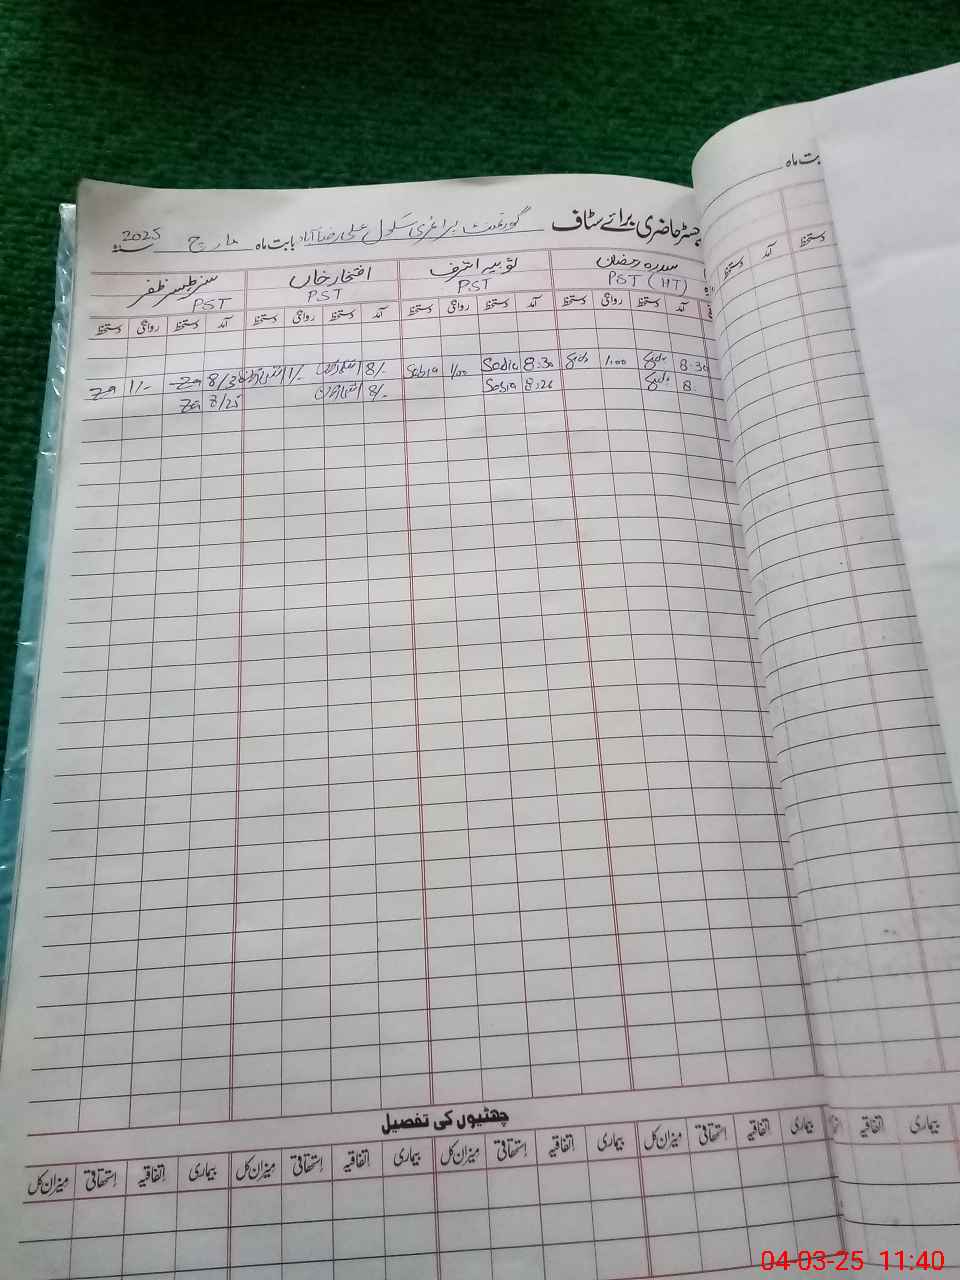 رجسٹر حاضری برائے سٹاف گورنمنٹ پرائمری سکول علی رضا آباد بابت ماہ مارچ سنہ 2025
سدرہ رمضان ثوبیہ اشرف افتخار خان ظفر
PST (HT) PST PST PST
آمد دستخط روانگی دستخط آمد دستخط روانگی دستخط آمد دستخط روانگی دستخط آمد دستخط روانگی دستخط
8.30 1:00 8.30 Sobia 1/00 Sobia 8/- 1/- 8/30 Za 1/- Za
8. 8:26 Sobia 8/- 8/25 Za
چھٹیوں کی تفصیل
بیماری اتفاقیہ استحقاقی میزان کل بیماری اتفاقیہ استحقاقی میزان کل بیماری اتفاقیہ استحقاقی میزان کل
بابت ماہ
دستخط آمد دستخط
بیماری اتفاقیہ
04-03-25 11:40